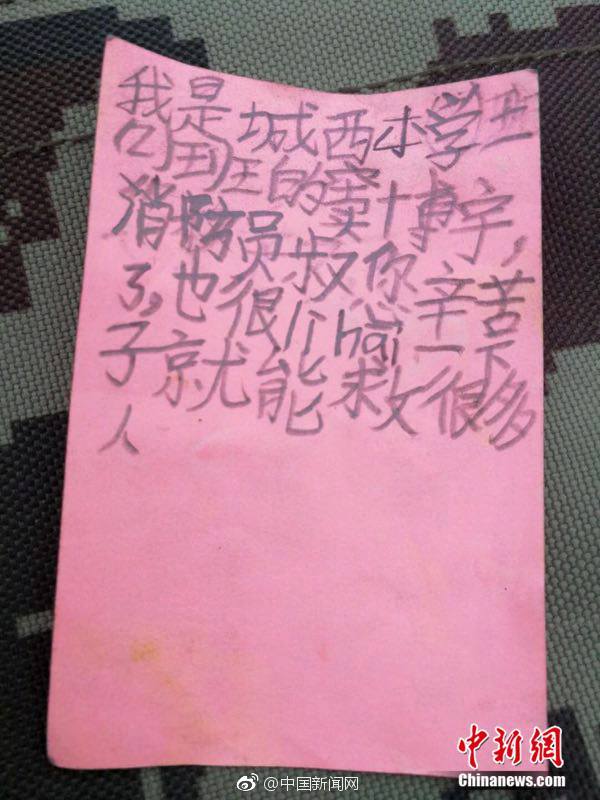 我是城西小学二
(1)班的窦博宇,
消防员叔你辛苦
了,也很lì hai一下
子就能救很多
人
中新网
Chinanews.com
@中国新闻网